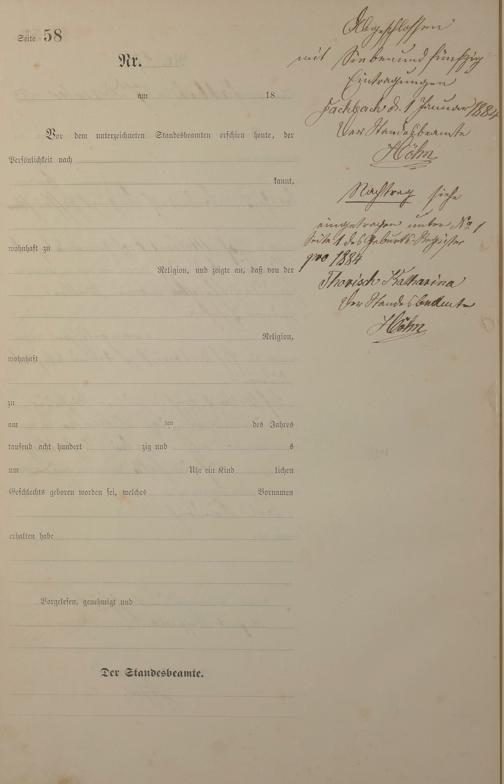 Seite 58
Nr.
am 18
Vor dem unterzeichneten Standesbeamten erschien heute, der
Persönlichkeit nach
kannt,
wohnhaft zu
Religion, und zeigte an, daß von der
Religion,
wohnhaft
zu
am ten des Jahres
tausend acht hundert zig und s
um Uhr ein Kind lichen
Geschlechts geboren worden sei, welches Vornamen
erhalten habe
Vorgelesen, genehmigt und
Der Standesbeamte.
Abgeschlossen
mit Siebenundfünfzig
Eintragungen
Fachbach d. 1 Januar 1884
Der Standesbeamte
Höhn
Nachtrag siehe
eingetragen unter No 1
Seite 1 des Geburts-Register
pro 1884
Katharina
Der Standesbeamte
Höhn